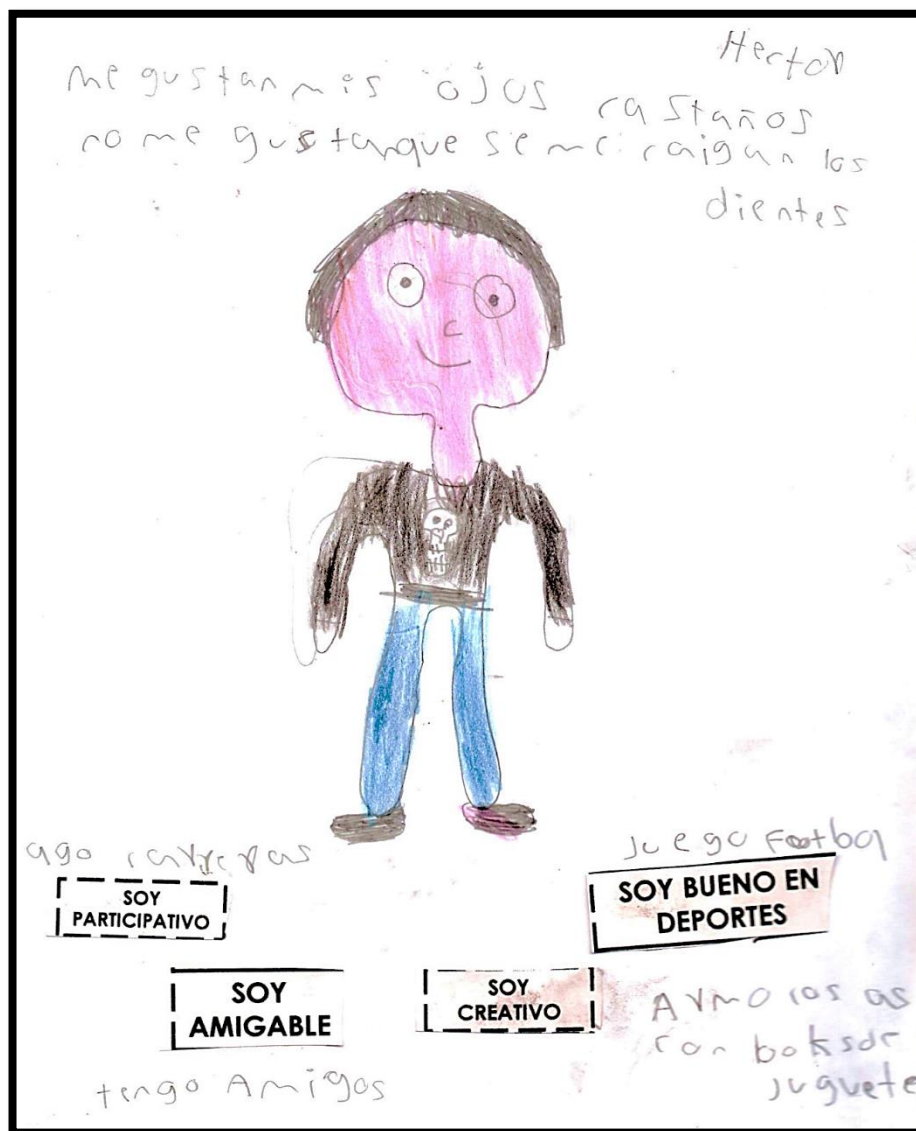 Hector
me gustan mis ojos castaños
no me gustanque se me caigan los
dientes
ago carreras
SOY
PARTICIPATIVO
juego Footba
SOY BUENO EN
DEPORTES
SOY
AMIGABLE
tengo Amigos
SOY
CREATIVO
Armo cos as
con boksde
juguete